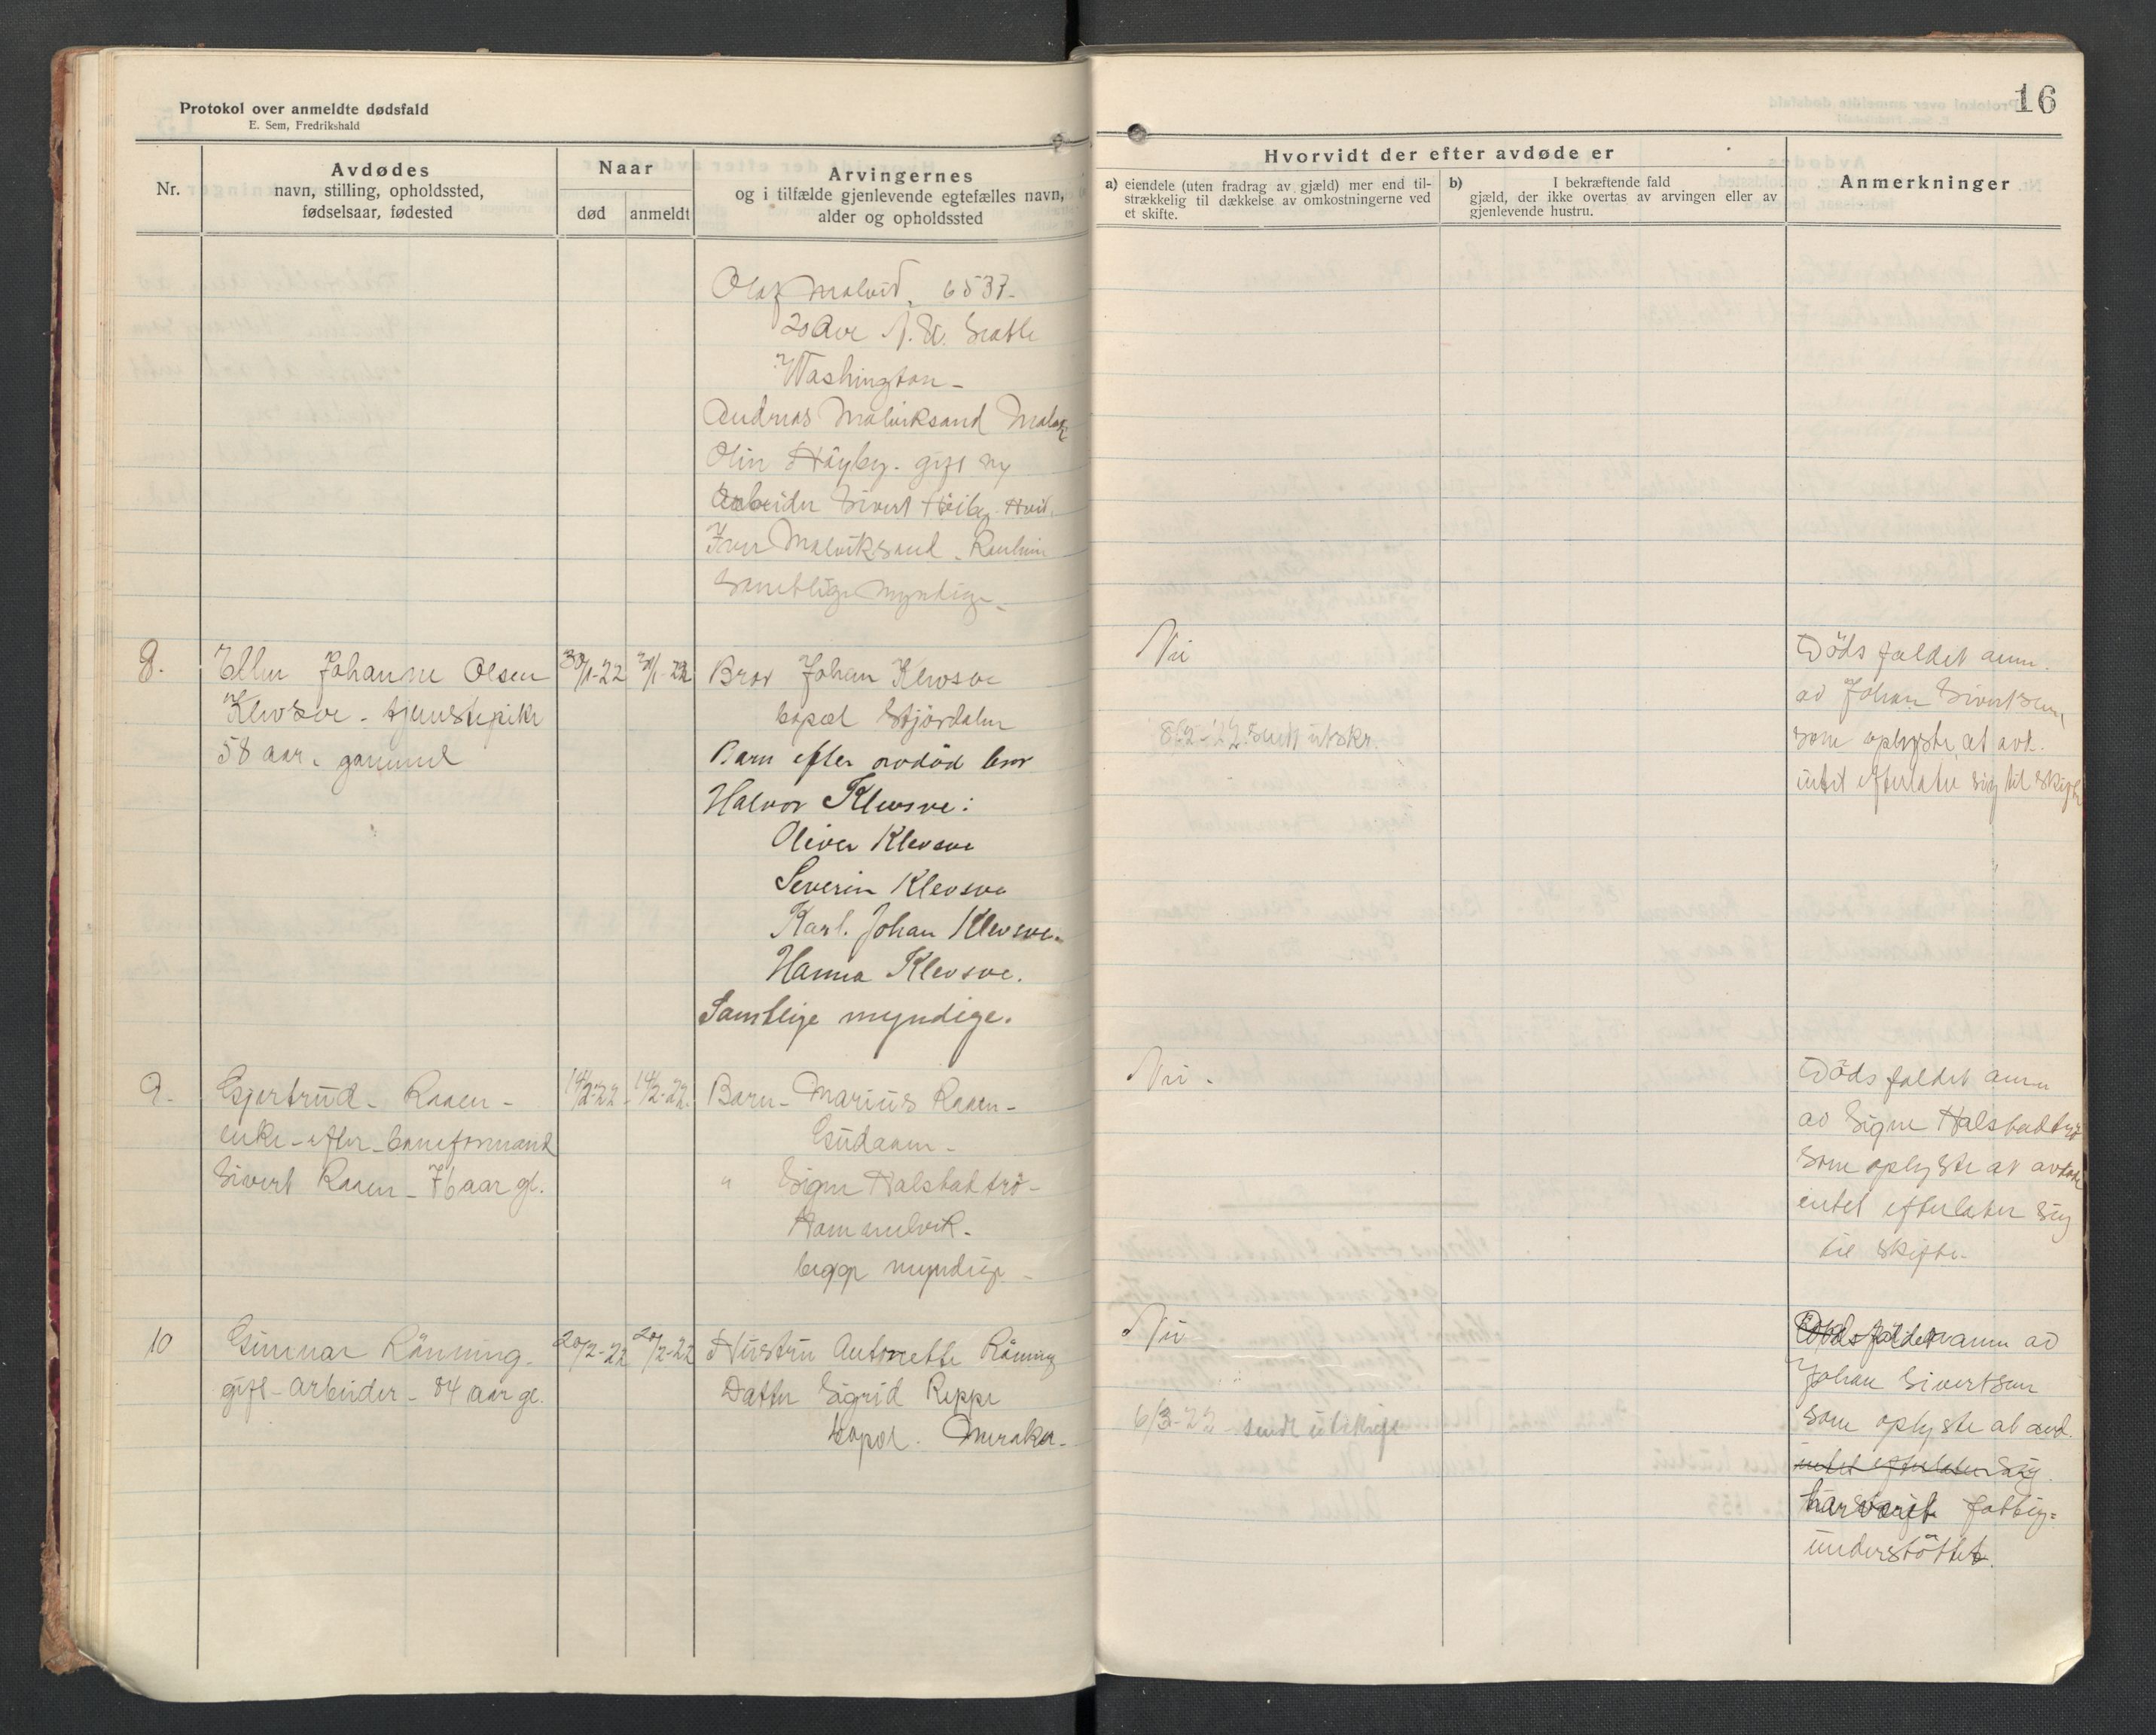 Protokol over anmeldte dødsfald
E. Sem, Fredrikshald
16
Nr.
Avdødes
navn, stilling, opholdssted,
fødselsaar, fødested
Naar
død
anmeldt
Arvingernes
og i tilfælde gjenlevende egtefælles navn,
alder og opholdssted
Hvorvidt der efter avdøde er
a) eiendele (uten fradrag av gjæld) mer end til-
strækkelig til dækkelse av omkostningerne ved
et skifte.
b) I bekræftende fald
gjæld, der ikke overtas av arvingen eller av
gjenlevende hustru.
Anmerkninger
Olaf Malvid, 6537-
20 Ave N.W. Seatle
Washington-
Andreas Malviksand Malvik
Olin Höyby. gift m/
Arbeider Sivert Höiby.
Iver Malviksand. Ranheim
Samtlige myndige-
8.
Ellen Johanne Olsen
Klevsve - tjenestepike
58 aar. gammel
30/1-22
31/1-22
Bror Johan Klevsve
bopæl Stjördalen
Barn efter avdöd bror
Halvor Klevsve:
Oliver Klevsve
Severin Klevsve
Karl. Johan Klevsve.
Hanna Klevsve.
Samtlige myndige.
Nei
8/2-22. sendt utskr.
Dödsfaldet anm.
av Johan Sivertsen,
som oplyste at avd.
intet efterlater sig til skifte
9.
Gjertrud- Raaen-
enke-efter-baneformand
Sivert Raaen- 76 aar gl.
14/2-22
14/2-22.
Barn- Marius Raaen-
Gudaaen-
" Signe Halstadtrö-
Hommelvik-
begge myndige-
Nei.
Dödsfaldet anm
av Signe Halstadtrö
som oplyste at avdöde
intet efterlater sig
til skifte-
10
Gunnar Rönning-
gift-arbeider- 84 aar gl.
20/2-22
20/2-22
Hustru Antonette Röning
Datter Sigrid Reppe
bopæl. Meraker-
Nei
6/3-22 sendt utskrift
Dödsfaldet anm av
Johan Sivertsen
som oplyste at avd.
intet efterlater sig.
har været fattig=
understöttet.